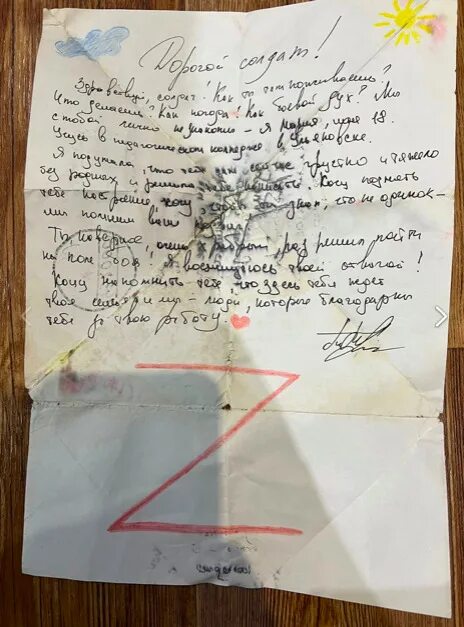 Дорогой солдат!
Здравствуй, солдат! Как ты там поживаешь?
Что делаешь? Как погода? Как боевой дух? Мы
с тобой лично не знакомы – я Мария, мне 18.
Учусь в педагогическом колледже в Ульяновске.
Я подумала, что тебе там сейчас грустно и тяжело
без родных, и решила написать. Хочу поднять
тебе настроение, хочу, чтобы ты знал: что не одинок –
мы помним
Ты, наверное, очень храбрый, раз решил пойти
на поле боя! Я восхищаюсь твоей отвагой!
Хочу напомнить тебе, что здесь тебя ждет
твоя семья и мы – люди, которые благодарны
тебе за твою работу!
Z